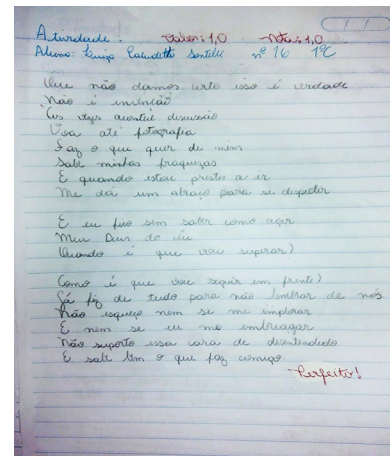 Atividade: Valor: 1,0 Nota: 1,0
Aluno: Luiza nº 16 1ºC
Que não damos certo isso é verdade
Não é invenção
Às vezes acontece discussão
Voa até fotografia
Faz o que quer de mim
Sabe minhas fraquezas
E quando estou prestes a ir
Me dá um abraço para se despedir
E eu fico sem saber como agir
Meu Deus do céu
Quando é que vou superar?
Como é que vou seguir em frente?
Já fiz de tudo para não lembrar de nós
Não esqueço nem se me implorar
E nem se eu me embriagar
Não suporto essa cara de desentendido
E sabe bem o que faz comigo
Perfeito!